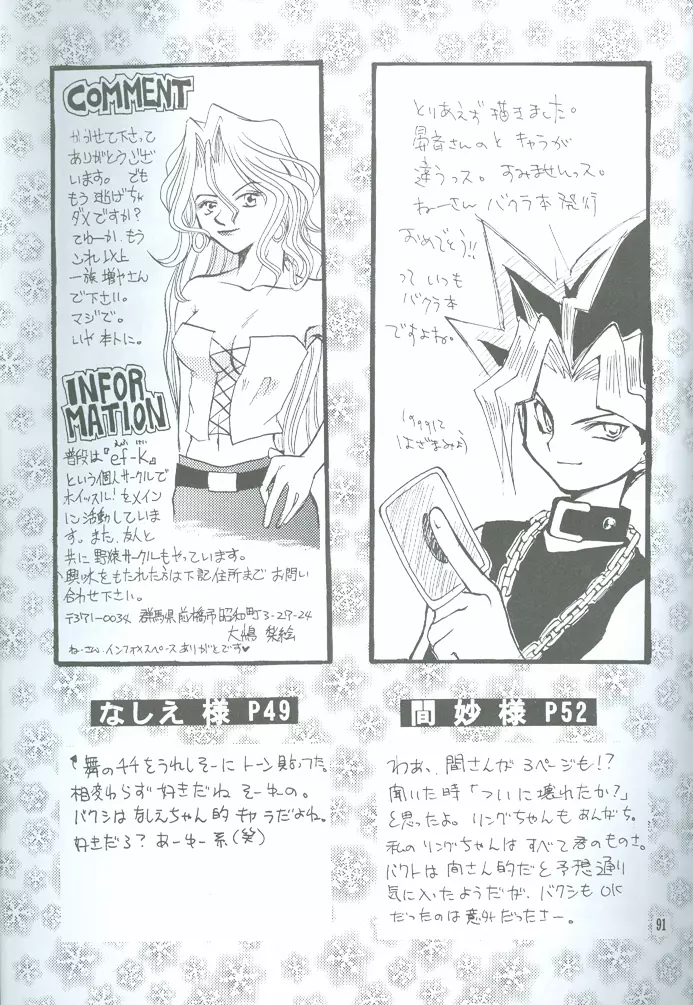 COMMENT
かかせて下さって
ありがとうござ
います。でも
もう逃げちゃ
ダメですか?
てゆーか、もう
これ以上
一族増やさん
で下さい。
マジで。
いや本トに。
INFOR
MATION
普段は『ef-k』
という個人サークルで
ホイッスル!をメイン
に活動していま
す。また、友人と
共に野猿サークルもやっています。
興味をもたれた方は下記住所までお問い
合わせ下さい。
ねーさん、インフォメスペースありがとです♥
とりあえず描きました。
さんのとキャラが
違うっス。すみませんっス。
ねーさん バクラ本発行
おめでとう!!
って いつも
バクラ本
ですよね。
1999.12
はざまみょう
なしえ 様 P49
舞のチチをうれしそーにトーン貼ってた。
相変わらず好きだね そーゆーの。
バクシはなしえちゃん的キャラだよね。
好きだろ?あーゆー系(笑)
間 妙 様 P52
わあ、間さんが3ページも!?
聞いた時「ついに壊れたか?」
と思ったよ。リングちゃんもあんがち。
私のリングちゃんはすべて君のものさ。
バクトは間さん的だと予想通り
気に入ったようだが、バクシもOK
だったのは意外だったさー。
91